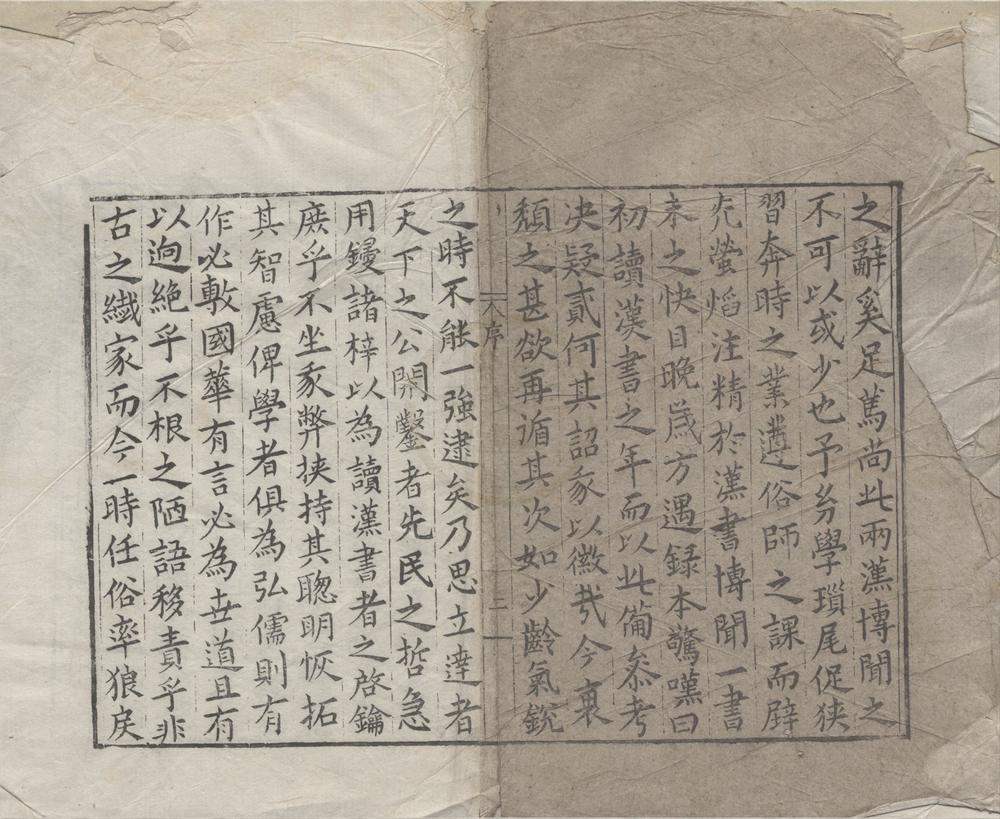 之辭奚足篤尚此兩漢博聞之
不可以或少也予幼學瑣尾促狹
習奔時之業遵俗師之課而辟
充螢熖注精於漢書博聞一書
未之快目晚歲方遇録本驚嘆曰
初讀漢書之年而以此簡叅考
决疑貳何其詔豕以徽㢤今衰
頽之甚欲再循其次如少齡氣銳
序
二
之時不能一強逮矣乃思立達者
天下之公開鑿者先民之哲急
用鋟諸梓以為讀漢書者之啓鑰
庶乎不坐豕弊挟持其聰明恢拓
其智慮俾學者俱為弘儒則有
作必敷國華有言必為世道且有
以逈絕乎不根之陋語移責乎非
古之纎家而今一時任俗率狼戾